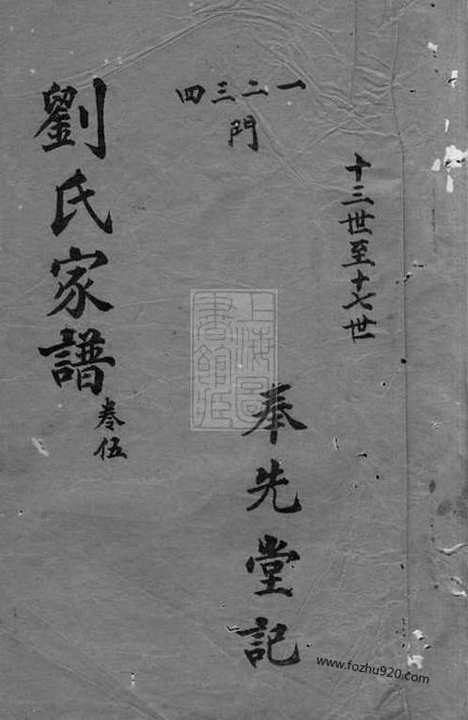 十三世至十七世
一二三四
門
奉先堂記
劉氏家譜
卷伍
上海圖書館藏
www.fozhu920.com